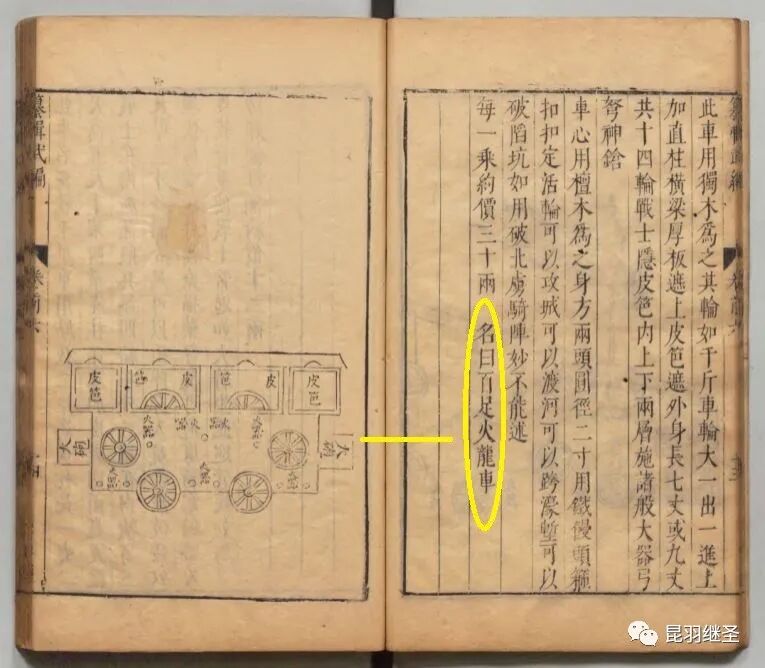 此車用獨木爲之其輪如千斤車輪大一出一進上
加直柱橫梁厚板遮上皮笆遮外身長七丈或九丈
共十四輪戰士隱皮笆内上下兩層施諸般大器弓
弩神鎗
車心用檀木爲之身方兩頭圓徑二寸用鐵鋄頭箍
扣扣定活輪可以攻城可以渡河可以跨濠塹可以
破陷坑如用破北虜騎陣妙不能述
每一乘約價三十兩 名曰百足火龍車
皮笆
皮笆
皮笆
皮笆
大砲
大砲
火器
火器
火器
火器
火器
火器
纂輯武編
昆羽继圣